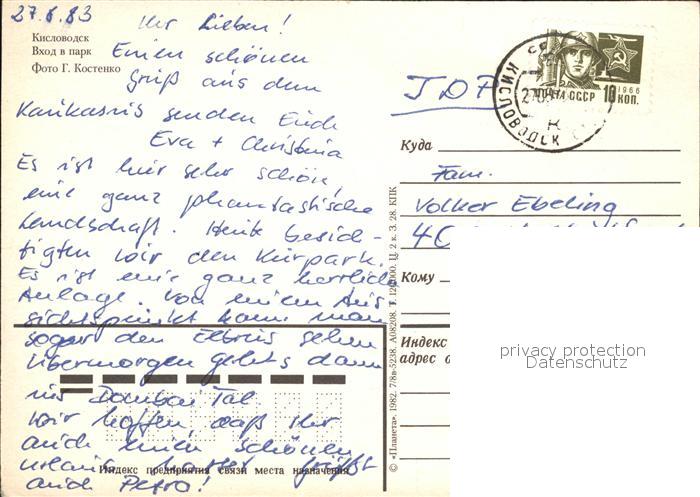 27.6.83
Кисловодск
Вход в парк
Фото Г. Костенко
Ihr Lieben!
Einen schönen
Gruß aus dem
Kaukasus senden Euch
Eva + Christina
Es ist hier sehr schön,
eine ganz phantastische
Landschaft. Heute besich-
tigten wir den Kurpark.
Es ist eine ganz herrliche
Anlage. Von einem Aus-
sichtspunkt kann man
sogar den Elbrus sehen
Übermorgen gehts dann
ins Dombai Tal
Wir hoffen, daß Ihr
auch einen schönen
Urlaub hattet. Grüßt
auch Petra!
Индекс предприятия связи места назначения
© «Планета». 1982. 7/8в-5238. А08208. Т. 12 000. Ц. 2 к. З. 28. КПК
ПОЧТА СССР
1966
10 КОП.
КИСЛОВОДСК
Куда
Fam.
Volker Ebeling
40
Кому
Индекс
адрес о
privacy protection
Datenschutz